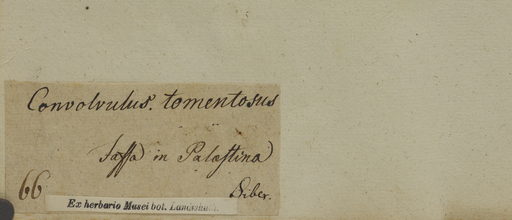 Convolvulus. tomentosus
Jaffa in Palæstina
66
Siber.
Ex herbario Musei bot. Landshut.